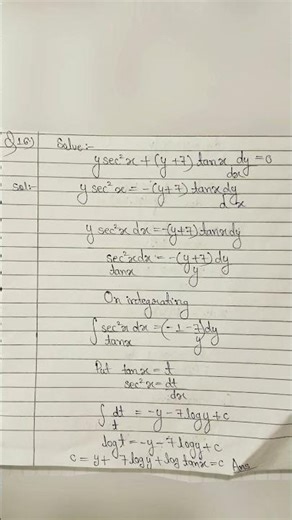 Q16) Solve:-
y sec²x + (y+7) tanx dy/dx = 0
Sol:- y sec²x = -(y+7) tanx dy/dx
y sec²x dx = -(y+7) tanx dy
sec²x dx/tanx = -(y+7) dy/y
On integrating
∫ sec²x dx/tanx = (-1-7/y) dy
Put tanx = t
sec²x = dt/dx
∫ dt/t = -y-7logy+c
logt = -y-7logy+c
c = y+ 7logy+logtanx=c Ans